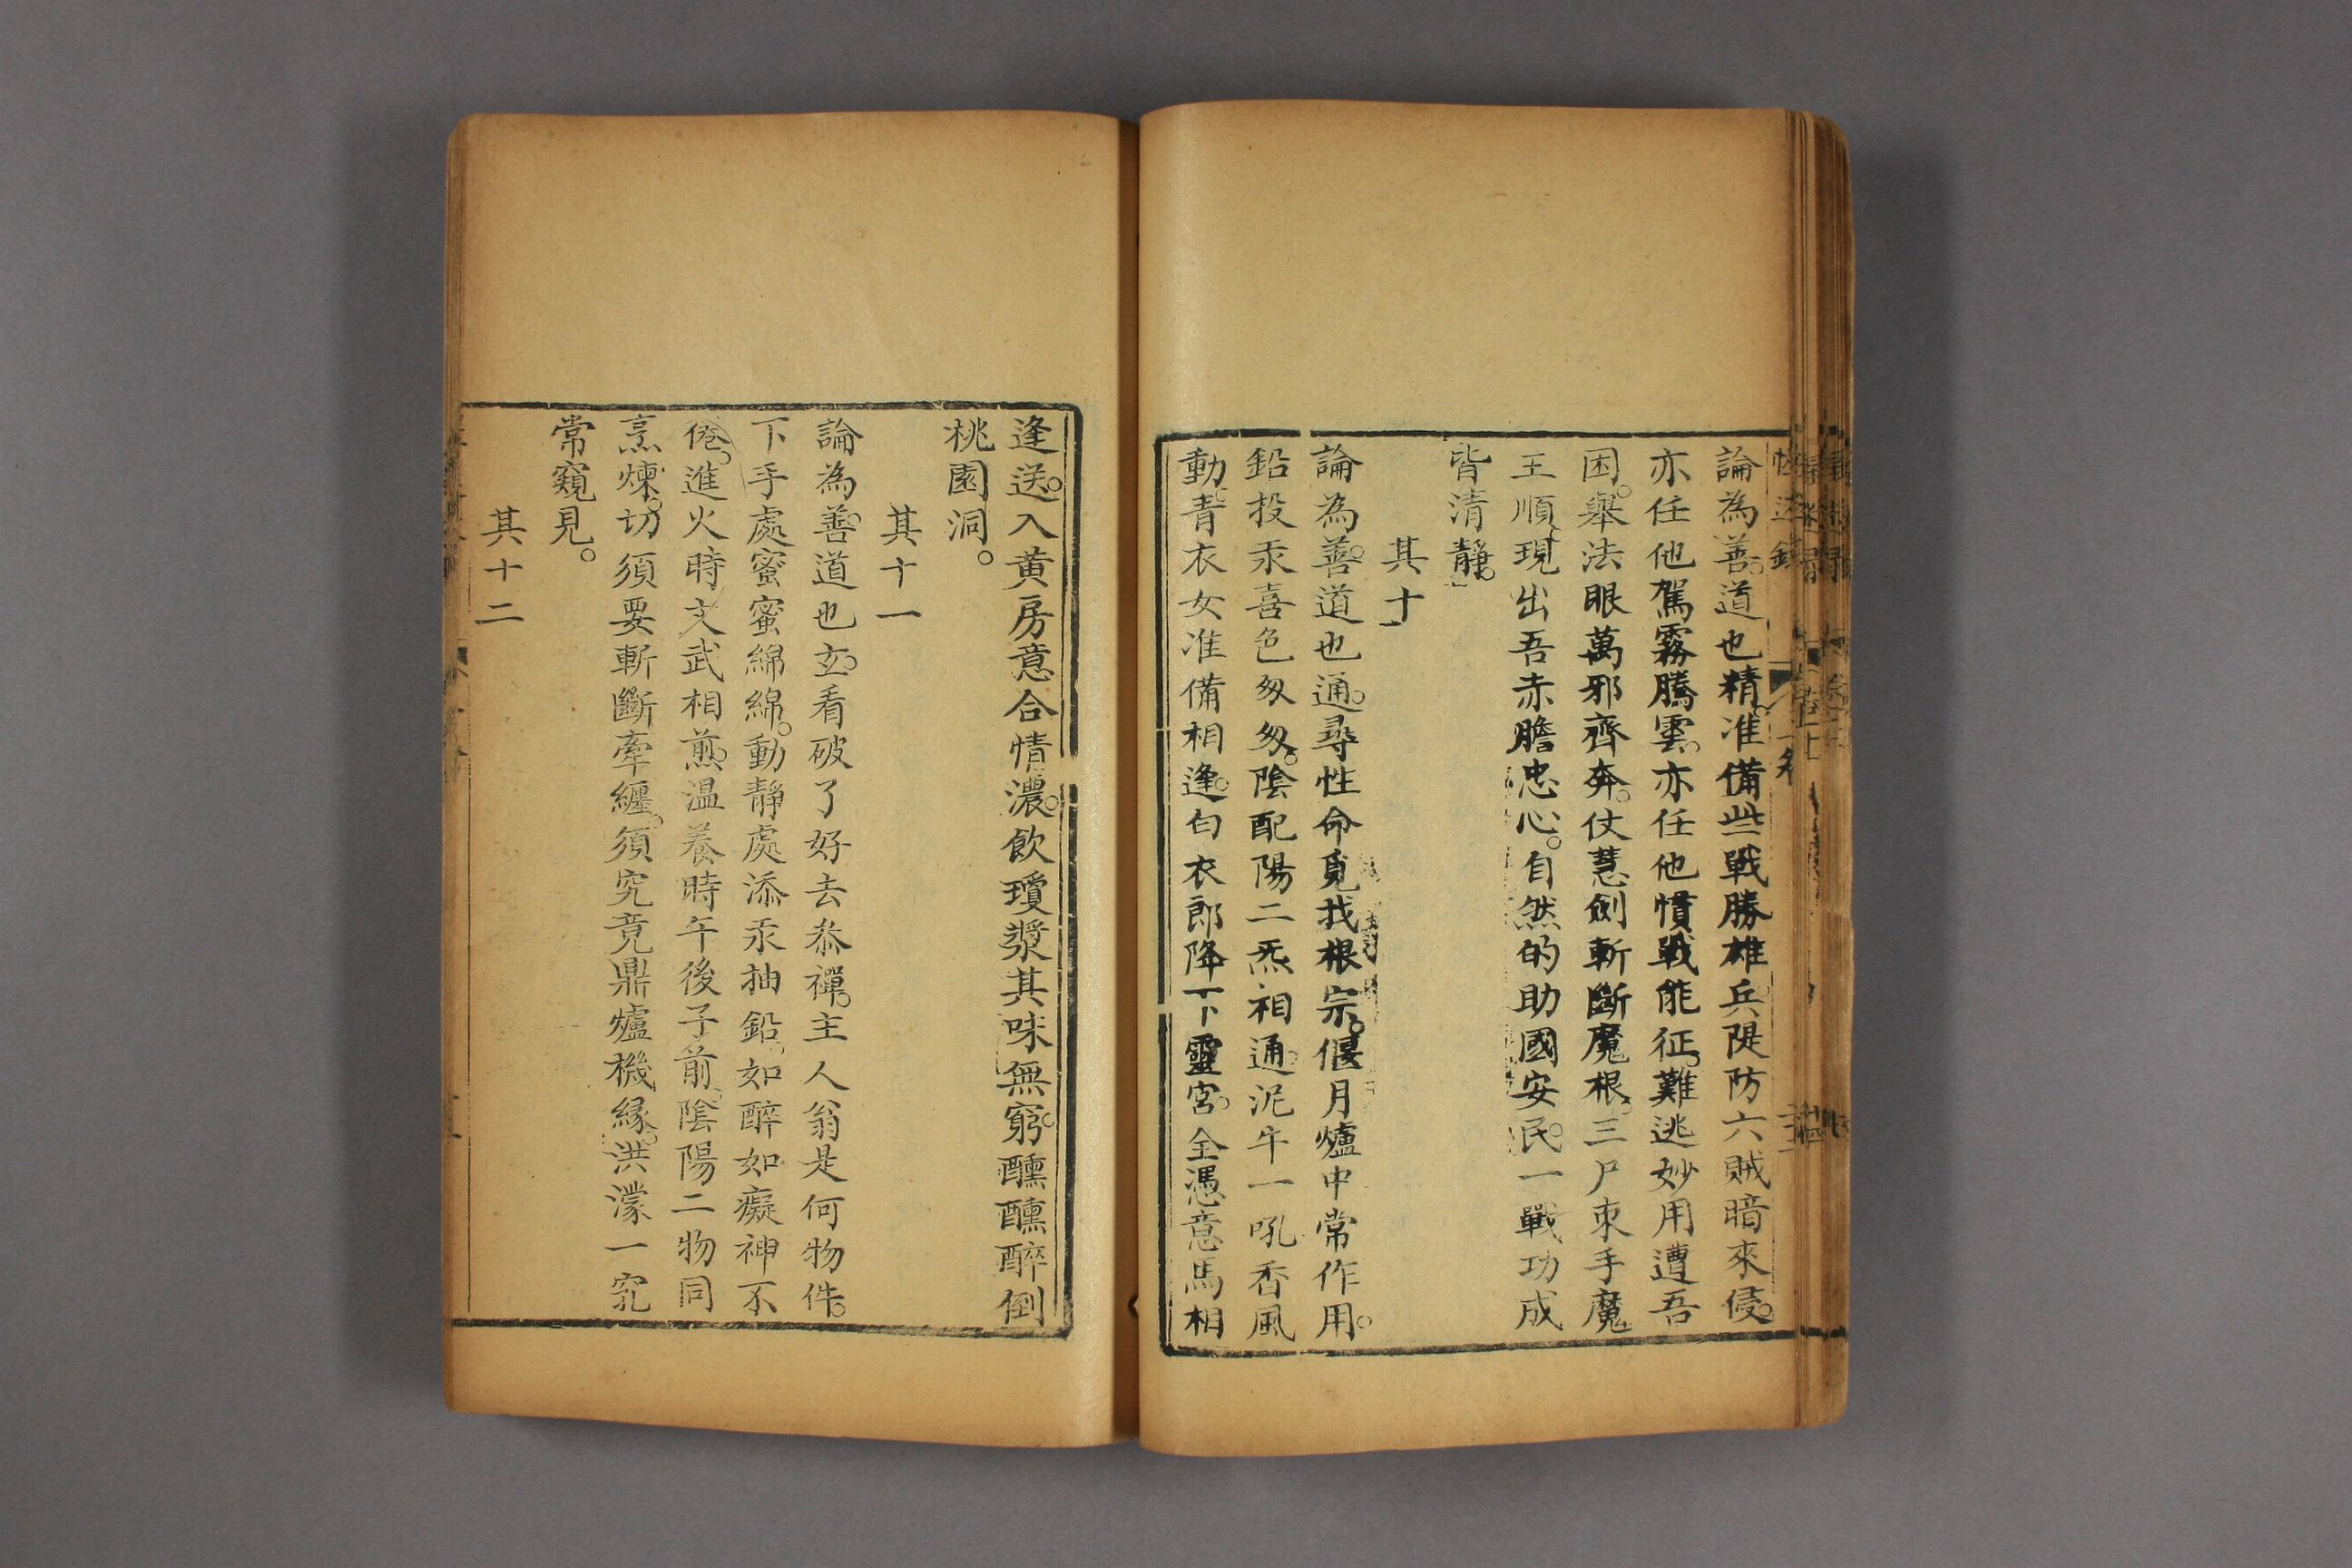 論為善。道也精。准備些戰勝雄兵隄防六賊暗來侵。
亦任他駕霧騰雲。亦任他慣戰能征。難逃妙用遭吾
困。舉法眼萬邪齊奔。仗慧劍斬斷魔根。三尸束手魔
王順。現出吾赤膽忠心。自然的助國安民。一戰功成
皆清靜。
其十
論為善。道也通。尋性命覓找根宗。偃月爐中常作用。
鉛投汞喜色匆匆。陰配陽二炁相通。泥牛一吼香風
動。青衣女准備相逢。白衣郎降下靈宮。全憑意馬相
逢送。入黃房意合情濃。飲瓊漿其味無窮。醺醺醉倒
桃園洞。
其十一
論為善。道也玄。看破了好去叅禪。主人翁是何物件。
下手處蜜蜜綿綿。動靜處添汞抽鉛。如醉如癡神不
倦。進火時文武相煎。温養時午後子前。陰陽二物同
烹煉。切須要斬斷牽纏。須究竟鼎爐機緣。洪濛一竅
常窺見。
其十二